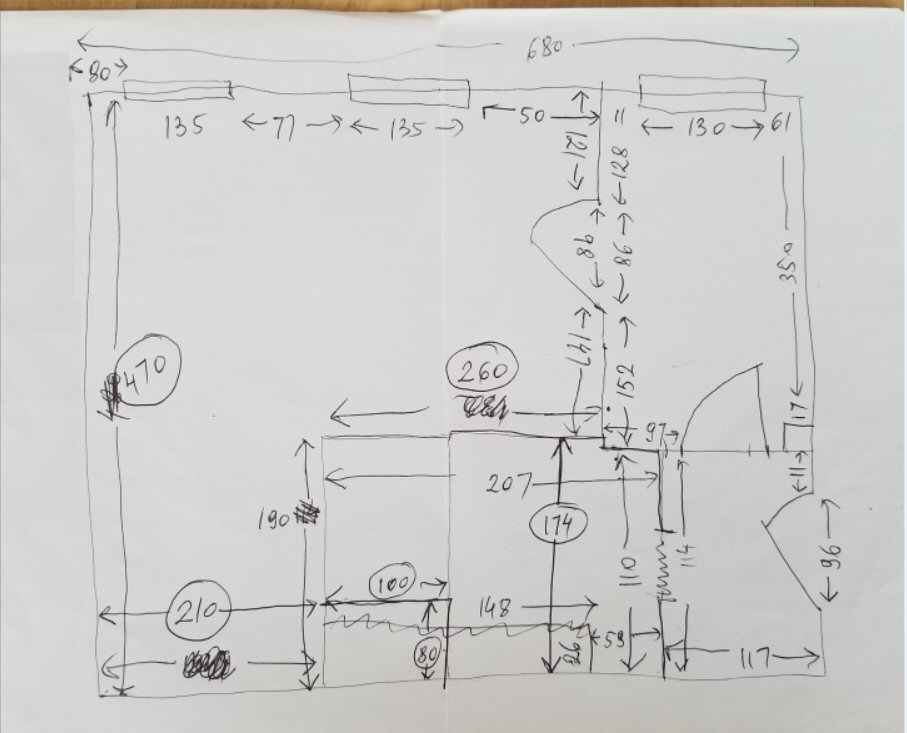 680
80
135
77
135
50
11
130
61
121
128
86
86
350
147
152
470
260
97
17
11
207
190
174
110
114
96
100
148
210
80
26
59
117